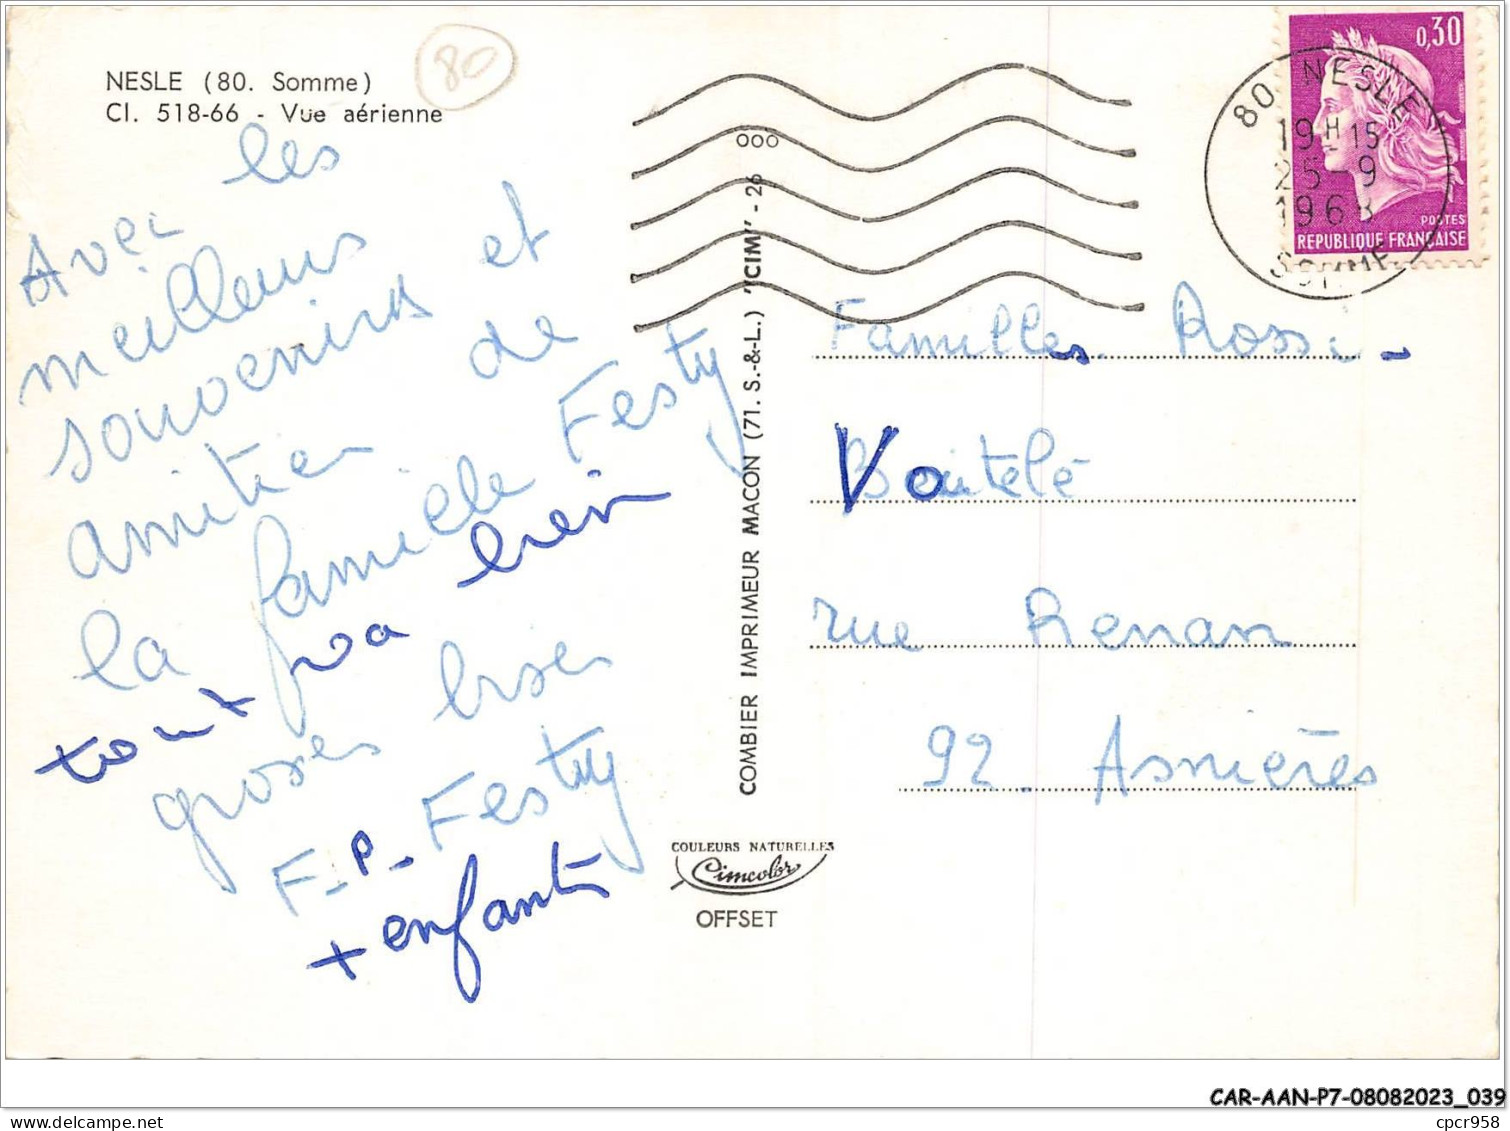 NESLE (80. Somme)
Cl. 518-66 - Vue aérienne
80
Avec les
meilleurs
souvenirs et
amitiés de
la famille Festy
tout va bien
groses bises
F.P. Festy
+ enfants
COMBIER IMPRIMEUR MACON (71. S.-&-L.) "CIM" - 26
ooo
COULEURS NATURELLES
Cimcolor
OFFSET
0,30
POSTES
REPUBLIQUE FRANÇAISE
80 NESLE
19H15
25-9
1968
SOMME
Familles Rossi -
rue Renan
92 - Asnières
CAR-AAN-P7-08082023_039
delcampe.net
cpcr958